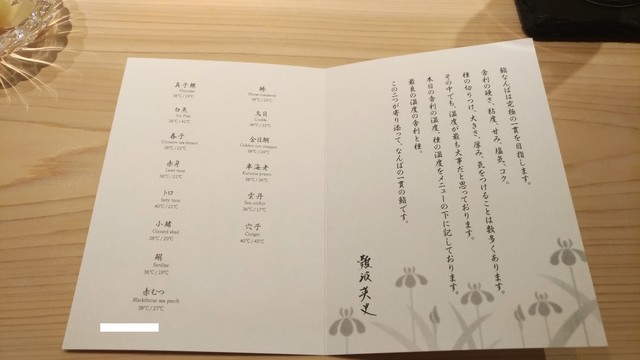 真子鰈
Flounder
38℃/19℃
白魚
Ice Fish
春子
38℃/22℃
赤身
Lean tuna
36℃/21℃
トロ
Fatty tuna
40℃/21℃
小鰭
Gizzard shad
38℃/20℃
鰯
Sardine
36℃/19℃
赤むつ
Blackthroat sea perch
38℃/27℃
鯵
鳥貝
Cockle
金目鯛
Golden eye snapper
車海老
Kuruma prawn
雲丹
Sea urchin
36℃/17℃
穴子
Conger
40℃/45℃
鮨なんばは究極の一貫を目指します。
舎利の硬さ、粘度、甘み、塩気、コク。
種の切りつけ、大きさ、厚み、気をつけることは数多くあります。
その中でも、温度が最も大事だと思っております。
本日の舎利の温度、種の温度をメニューの下に記しております。
最良の温度の舎利と種。
この二つが寄り添って、なんばの一貫の鮨です。
難波英史